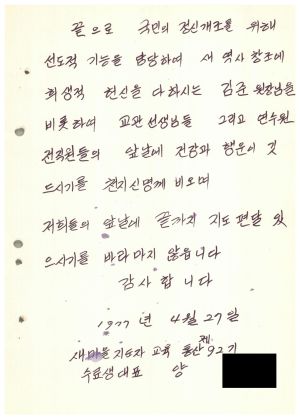 끝으로 국민의 정신개조를 위해
선도적 기능을 담당하며 새 역사 창조에
희생적 헌신을 다하시는 김준 원장님을
비롯하여 교관선생님들 그리고 연수원
전직원들의 앞날에 건강과 행운이 깃
드시기를 천지신명께 비오며
저희들의 앞날에 끝까지 지도편달 있
으시기를 바라마지 않읍니다
감사합니다
1977년 4월 27일
새마을 지도자 교육 통산 제92기
수료생대표 양